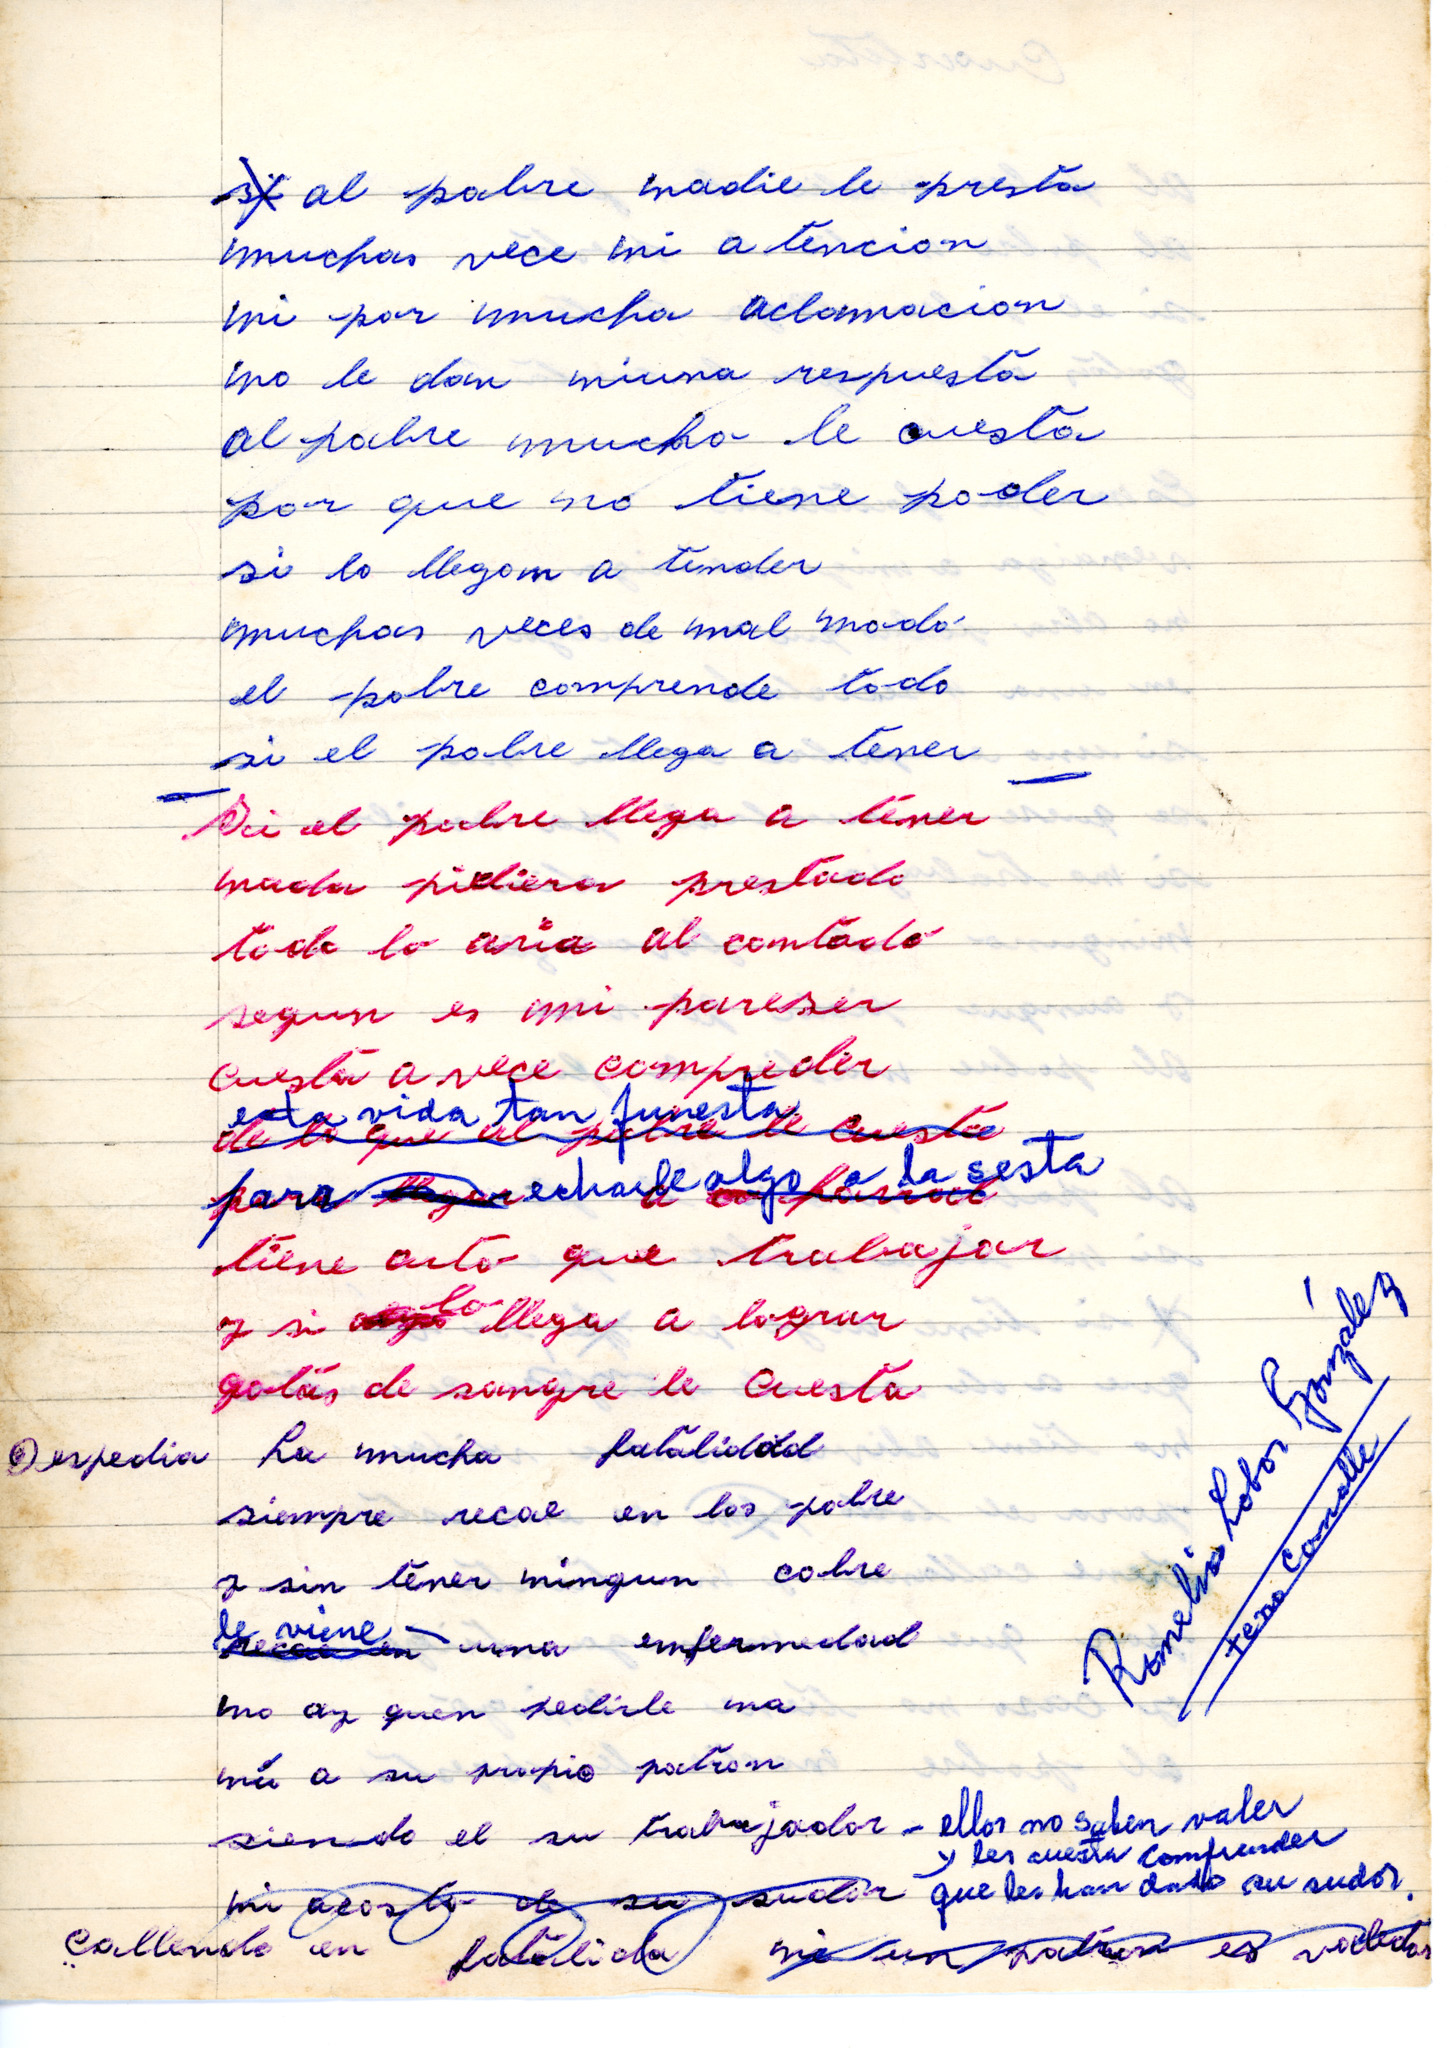 si al pobre nadie le presta
muchas vece ni atencion
ni por mucha aclamacion
no le dan niuna respuesta
al pobre mucho le cuesta
por que no tiene poder
si lo llegan a tender
muchas veces de mal modo
el pobre comprende todo
si el pobre llega a tener
Si el pobre llega a tener
nada pidiera prestado
todo lo aria al contado
segun es mi pareser
cuesta a vece compreder
esta vida tan funesta
de lo que al pobre le cuesta
para llegar echarle algo a la sesta
tiene arto que trabajar
y si algo lo llega a lograr
gotas de sangre le cuesta
Despedia La mucha fatalidad
siempre recae en los pobre
y sin tener ningun cobre
le viene
recae en una enfermedad
no ay quen pedirle na
ni a su propio patron
siendo el su trabajador - ellos no saben valer
y les cuesta comprender
ni acosta de su sudor que les han dado su sudor.
callendo en fatalida ni un patron es
Romelio Lobos González
teno Comalle